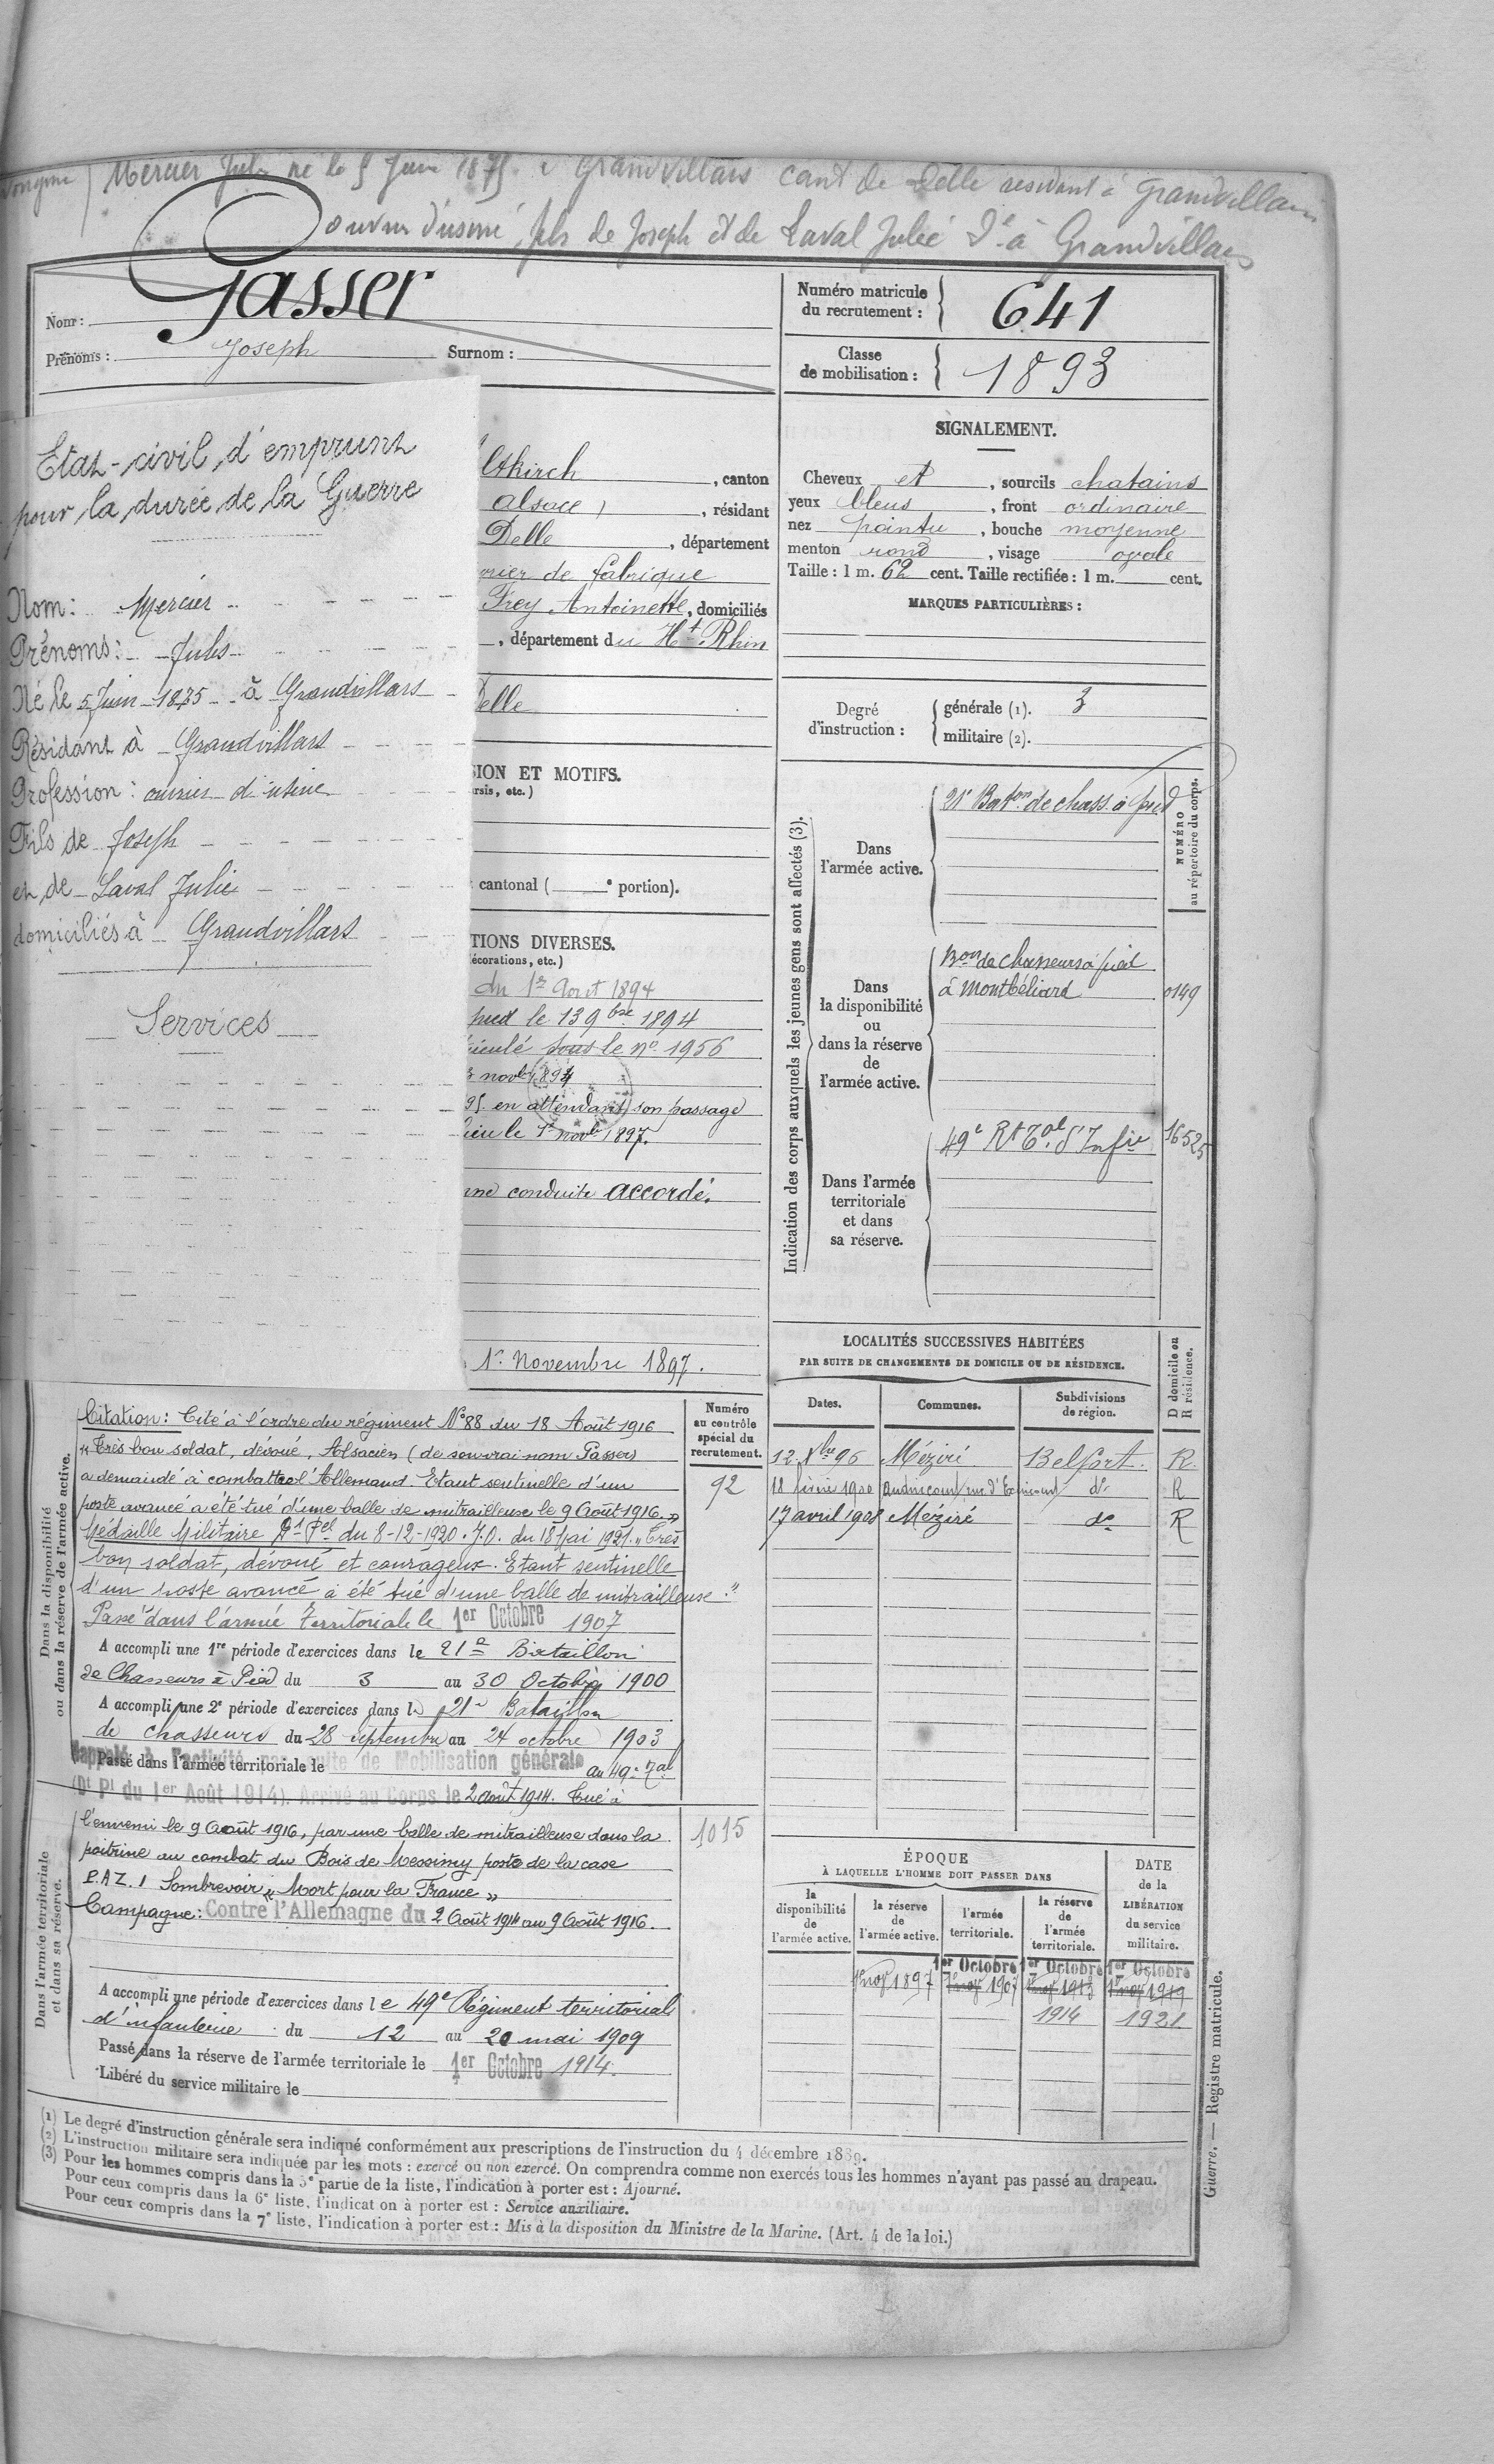 Mercier Jules né le 5 Juin 1875 à Grandvillars cant de Delle résidant à Grandvillars
ouvrier d'usine, fils de Joseph et de Laval Julie Dé à Grandvillars
Nom : Gasser
Prénoms : Joseph Surnom :
Numéro matricule du recrutement : 641
Classe de mobilisation : 1893
Etat-civil d'emprunt
pour la durée de la Guerre
Nom : Mercier
Prénoms : Jules
Né le 5 Juin 1875 à Grandvillars
Résidant à Grandvillars
Profession : ouvrier d'usine
Fils de Joseph
et de Laval Julie
domiciliés à Grandvillars
Services
ltkirch, canton
Alsace), résidant
Delle, département
vrier de fabrique
Frey Antoinette, domiciliés
, département du Ht Rhin
Delle
SION ET MOTIFS.
rsis, etc.)
cantonal ( e portion).
TIONS DIVERSES.
écorations, etc.)
du 1er Aout 1894
pied le 13 9bre 1894
riculé sous le no 1956
novbre 1894
95 en attendant son passage
lieu le 1er novbre 1897.
nne conduite accordé.
1er Novembre 1897.
SIGNALEMENT.
Cheveux et, sourcils chatains
yeux bleus, front ordinaire
nez pointu, bouche moyenne
menton rond, visage ovale
Taille : 1 m. 62 cent. Taille rectifiée : 1 m. cent.
MARQUES PARTICULIÈRES :
Degré d'instruction :
générale (1). 3
militaire (2).
Indication des corps auxquels les jeunes gens sont affectés (3).
NUMÉRO au répertoire du corps.
Dans l'armée active.
21e Baton de chass. à pied
Dans la disponibilité ou dans la réserve de l'armée active.
Bon de chasseurs à pied
à Montbéliard
0149
Dans l'armée territoriale et dans sa réserve.
49e Rt Tal d'Infie
16525
LOCALITÉS SUCCESSIVES HABITÉES
PAR SUITE DE CHANGEMENTS DE DOMICILE OU DE RÉSIDENCE.
Dates. Communes. Subdivisions de région. D domicile ou R résidence.
12 Xbre 96 Méziré Belfort. R.
18 février 1900 Audincourt do R
17 avril 1908 Méziré do R
Dans la disponibilité ou dans la réserve de l'armée active.
Numéro au contrôle spécial du recrutement.
92
Citation : Cité à l'ordre du régiment No 88 du 18 Août 1916
"Très bon soldat, dévoué, Alsacien (de son vrai nom Gasser)
a demandé à combattre l'Allemand. Etant sentinelle d'un
poste avancé a été tué d'une balle de mitrailleuse le 9 Août 1916"
Médaille Militaire Dt Pel du 8-12-1920. J.O. du 18 Mai 1921. "Très
bon soldat, dévoué et courageux. Etant sentinelle
d'un poste avancé a été tué d'une balle de mitrailleuse."
Passé dans l'armée Territoriale le 1er Octobre 1907
A accompli une 1re période d'exercices dans le 21e Bataillon
de Chasseurs à Pied du 3 au 30 Octobre 1900
A accompli une 2e période d'exercices dans le 21e Bataillon
de chasseurs du 28 septembre au 24 octobre 1903
Rappelé à l'activité par suite de Mobilisation générale
Passé dans l'armée territoriale le au 49e Tal
(Dt Pl du 1er Août 1914). Arrivé au Corps le 2 août 1914. Tué à
Dans l'armée territoriale et dans sa réserve.
1015
l'ennemi le 9 Août 1916, par une balle de mitrailleuse dans la
poitrine au combat du Bois de Messimy poste de la case
P.A Z. 1 Sombrevoir "Mort pour la France"
Campagne : Contre l'Allemagne du 2 Août 1914 au 9 Août 1916.
A accompli une période d'exercices dans le 49e Régiment territorial
d'infanterie du 12 au 20 mai 1909
Passé dans la réserve de l'armée territoriale le 1er Octobre 1914.
Libéré du service militaire le
ÉPOQUE
À LAQUELLE L'HOMME DOIT PASSER DANS
la disponibilité de l'armée active.
la réserve de l'armée active.
l'armée territoriale.
la réserve de l'armée territoriale.
DATE de la LIBÉRATION du service militaire.
1er Octobre 1er Octobre 1er Octobre
1er nov 1897 1er nov 1907 1er nov 1913 1er nov 1919
1914 1921
Guerre. — Registre matricule.
(1) Le degré d'instruction générale sera indiqué conformément aux prescriptions de l'instruction du 4 décembre 1889.
(2) L'instruction militaire sera indiquée par les mots : exercé ou non exercé. On comprendra comme non exercés tous les hommes n'ayant pas passé au drapeau.
(3) Pour les hommes compris dans la 5e partie de la liste, l'indication à porter est : Ajourné.
Pour ceux compris dans la 6e liste, l'indication à porter est : Service auxiliaire.
Pour ceux compris dans la 7e liste, l'indication à porter est : Mis à la disposition du Ministre de la Marine. (Art. 4 de la loi.)